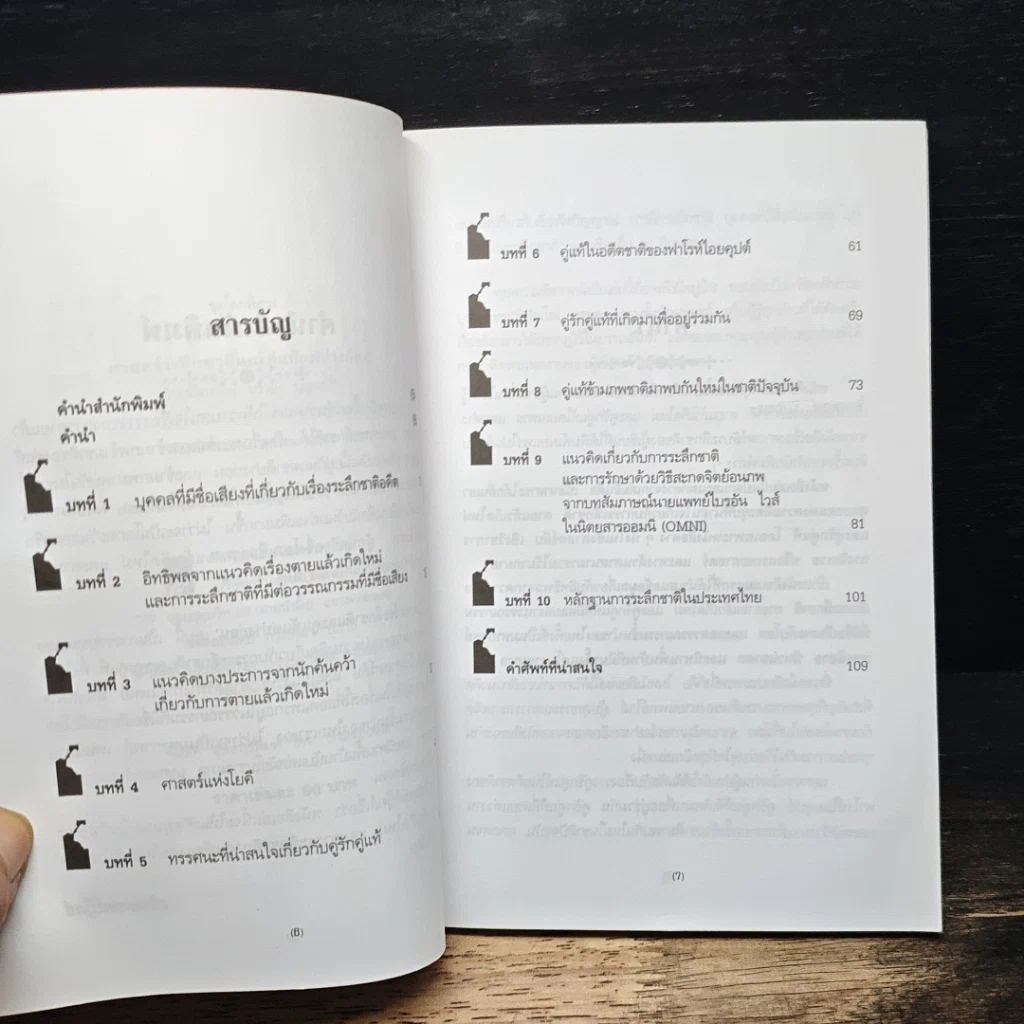 สารบัญ
คำนำสำนักพิมพ์
คำนำ
บทที่ 1 บุคคลที่มีชื่อเสียงที่เกี่ยวกับเรื่องระลึกชาติอดีต
บทที่ 2 อิทธิพลจากแนวคิดเรื่องตายแล้วเกิดใหม่
และการระลึกชาติที่มีต่อวรรณกรรมที่มีชื่อเสียง
บทที่ 3 แนวคิดบางประการจากนักค้นคว้า
เกี่ยวกับการตายแล้วเกิดใหม่
บทที่ 4 ศาสตร์แห่งโยคี
บทที่ 5 ทรรศนะที่น่าสนใจเกี่ยวกับคู่รักคู่แท้
บทที่ 6 คู่แท้ในอดีตชาติของฟาโรห์ไอยคุปต์ 61
บทที่ 7 คู่รักคู่แท้ที่เกิดมาเพื่ออยู่ร่วมกัน 69
บทที่ 8 คู่แท้ข้ามภพชาติมาพบกันใหม่ในชาติปัจจุบัน 73
บทที่ 9 แนวคิดเกี่ยวกับการระลึกชาติ
และการรักษาด้วยวิธีสะกดจิตย้อนภพ
จากบทสัมภาษณ์นายแพทย์ไบรอัน ไวส์
ในนิตยสารออมนิ (OMNI) 81
บทที่ 10 หลักฐานการระลึกชาติในประเทศไทย 101
คำศัพท์ที่น่าสนใจ 109
(7)